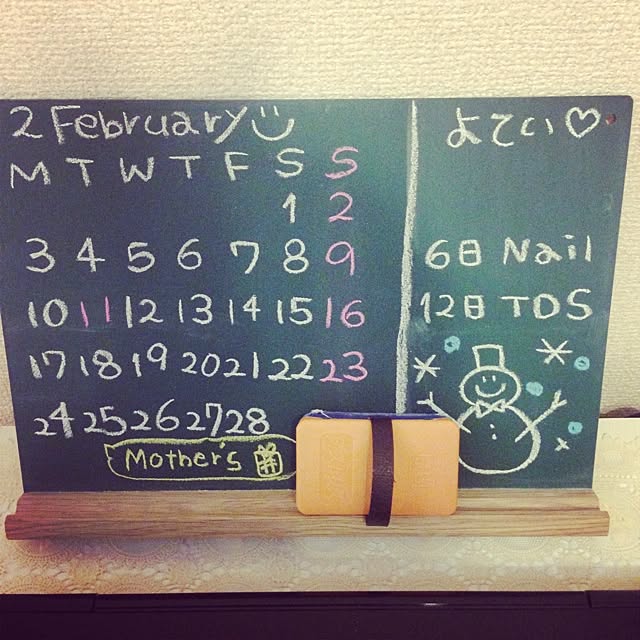 2 February
M T W T F S S
1 2
3 4 5 6 7 8 9
10 11 12 13 14 15 16
17 18 19 20 21 22 23
24 25 26 27 28
Mother's
よてい♡
6日 Nail
12日 TDS